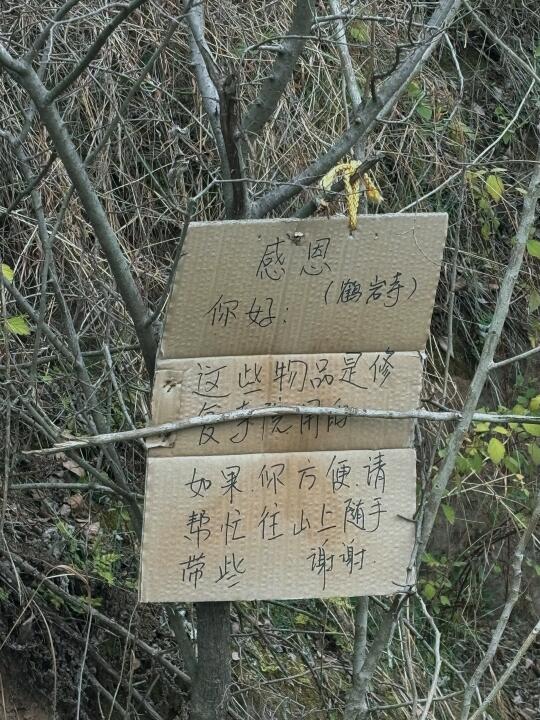 感恩
(鹤岩寺)
你好:
这些物品是修
复寺院用的
如果.你方便.请
帮忙往山上随手
带些 谢谢.